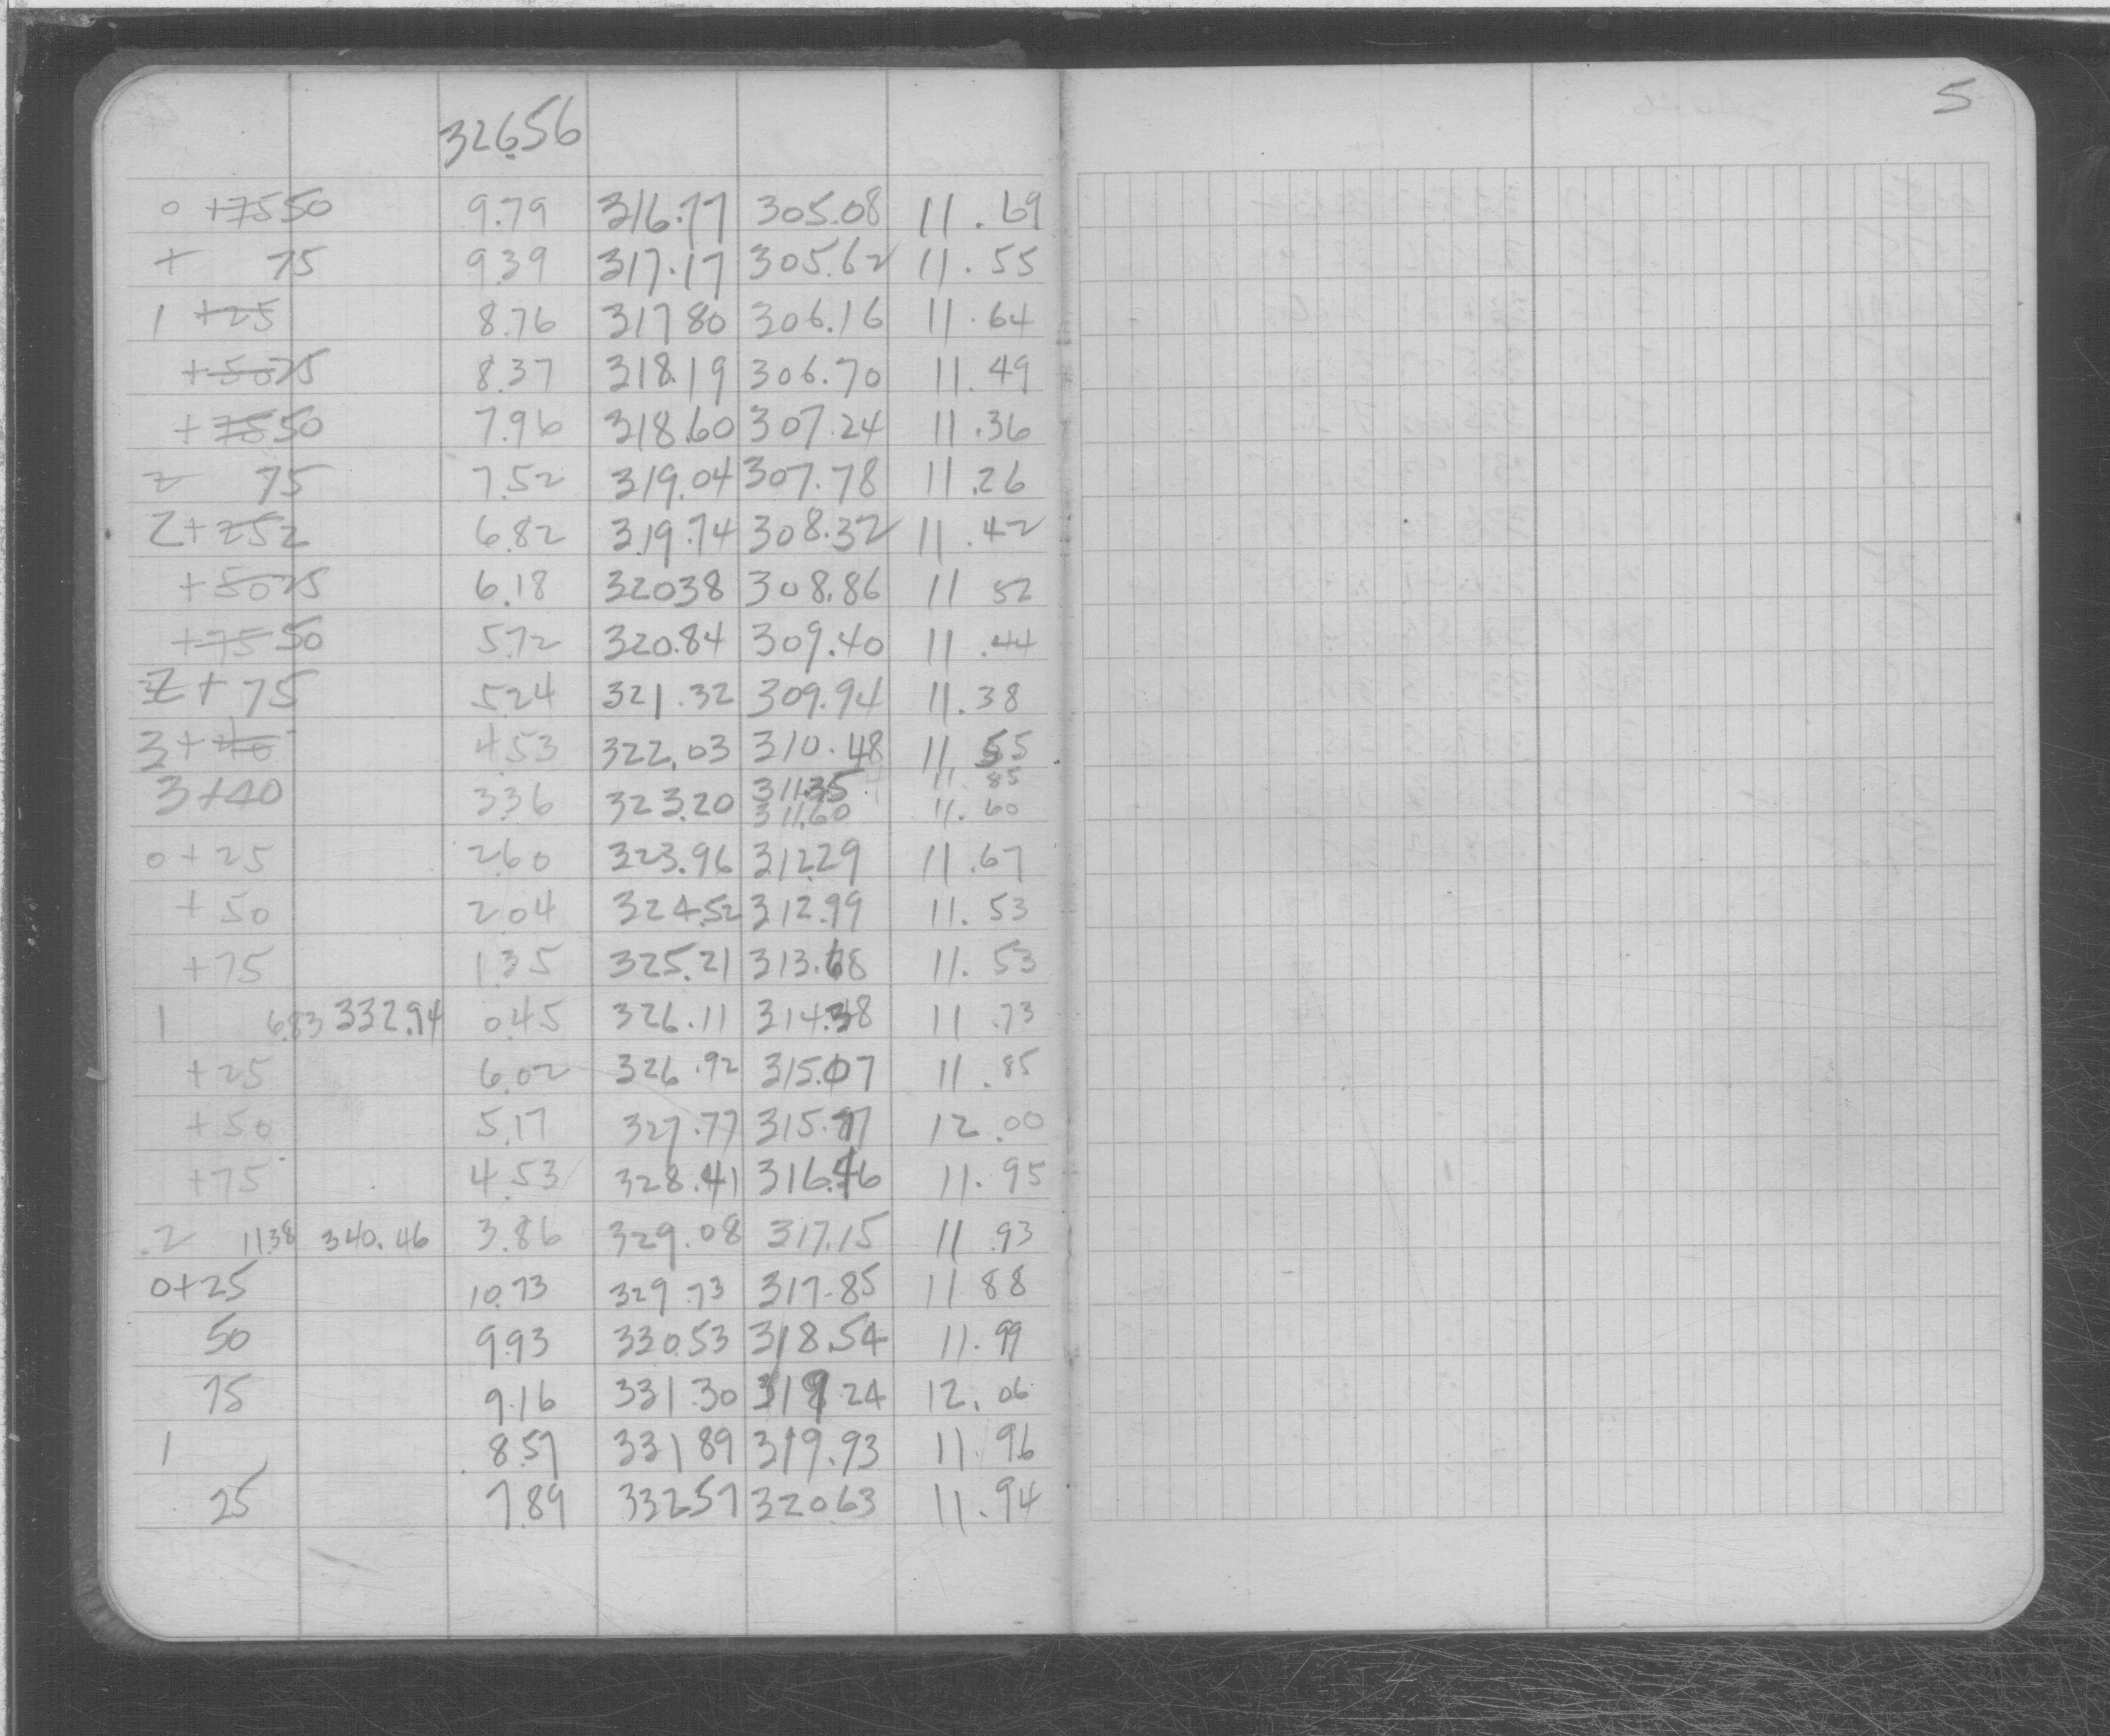 5
326.56
0 +75 50 9.79 316.77 305.08 11.69
+ 75 9.39 317.17 305.62 11.55
1 +25 8.76 317 80 306.16 11.64
+50 25 8.37 318.19 306.70 11.49
+75 50 7.96 318.60 307.24 11.36
2 75 7.52 319.04 307.78 11.26
2+25 2 6.82 319.74 308.32 11.42
+50 25 6.18 32038 308.86 11 52
+75 50 5.72 320.84 309.40 11.44
2+75 5.24 321.32 309.94 11.38
3+40 4.53 322.03 310.48 11 55
3+40 3.36 323.20 311.35 11.85
311.60 11.60
0+25 2.60 323.96 312.29 11.67
+50 2.04 324.52 312.99 11.53
+75 1.35 325.21 313.68 11.53
1 6.83 332.94 0.45 326.11 314.38 11.73
+25 6.02 326.92 315.07 11.85
+50 5.17 327.77 315.77 12.00
+75 4.53 328.41 316.46 11.95
2 11.38 340.46 3.86 329.08 317.15 11.93
0+25 10.73 329.73 317.85 11 88
50 9.93 330.53 318.54 11.99
75 9.16 331.30 319.24 12.06
1 8.57 331 89 319.93 11.96
25 7.89 332.57 320.63 11.94